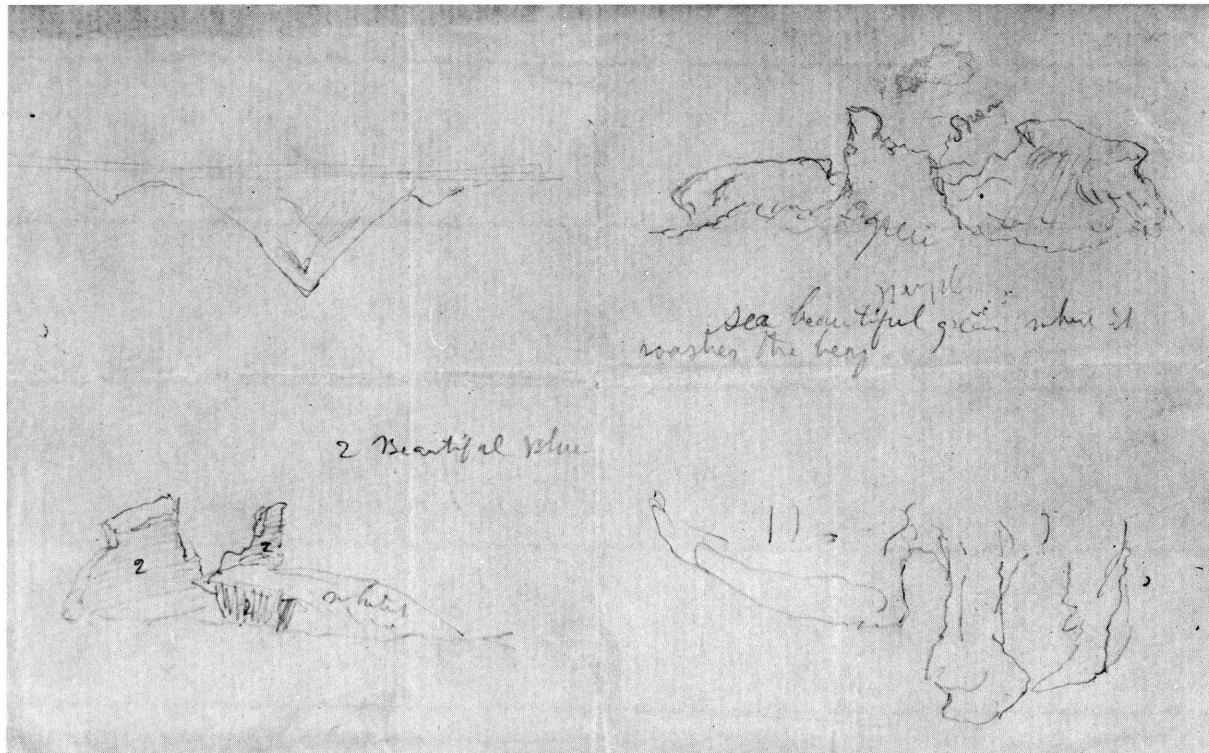 Spray
green
purple
sea beautiful green where it
washes the berg
2 Beautiful blue
2
2
2
white